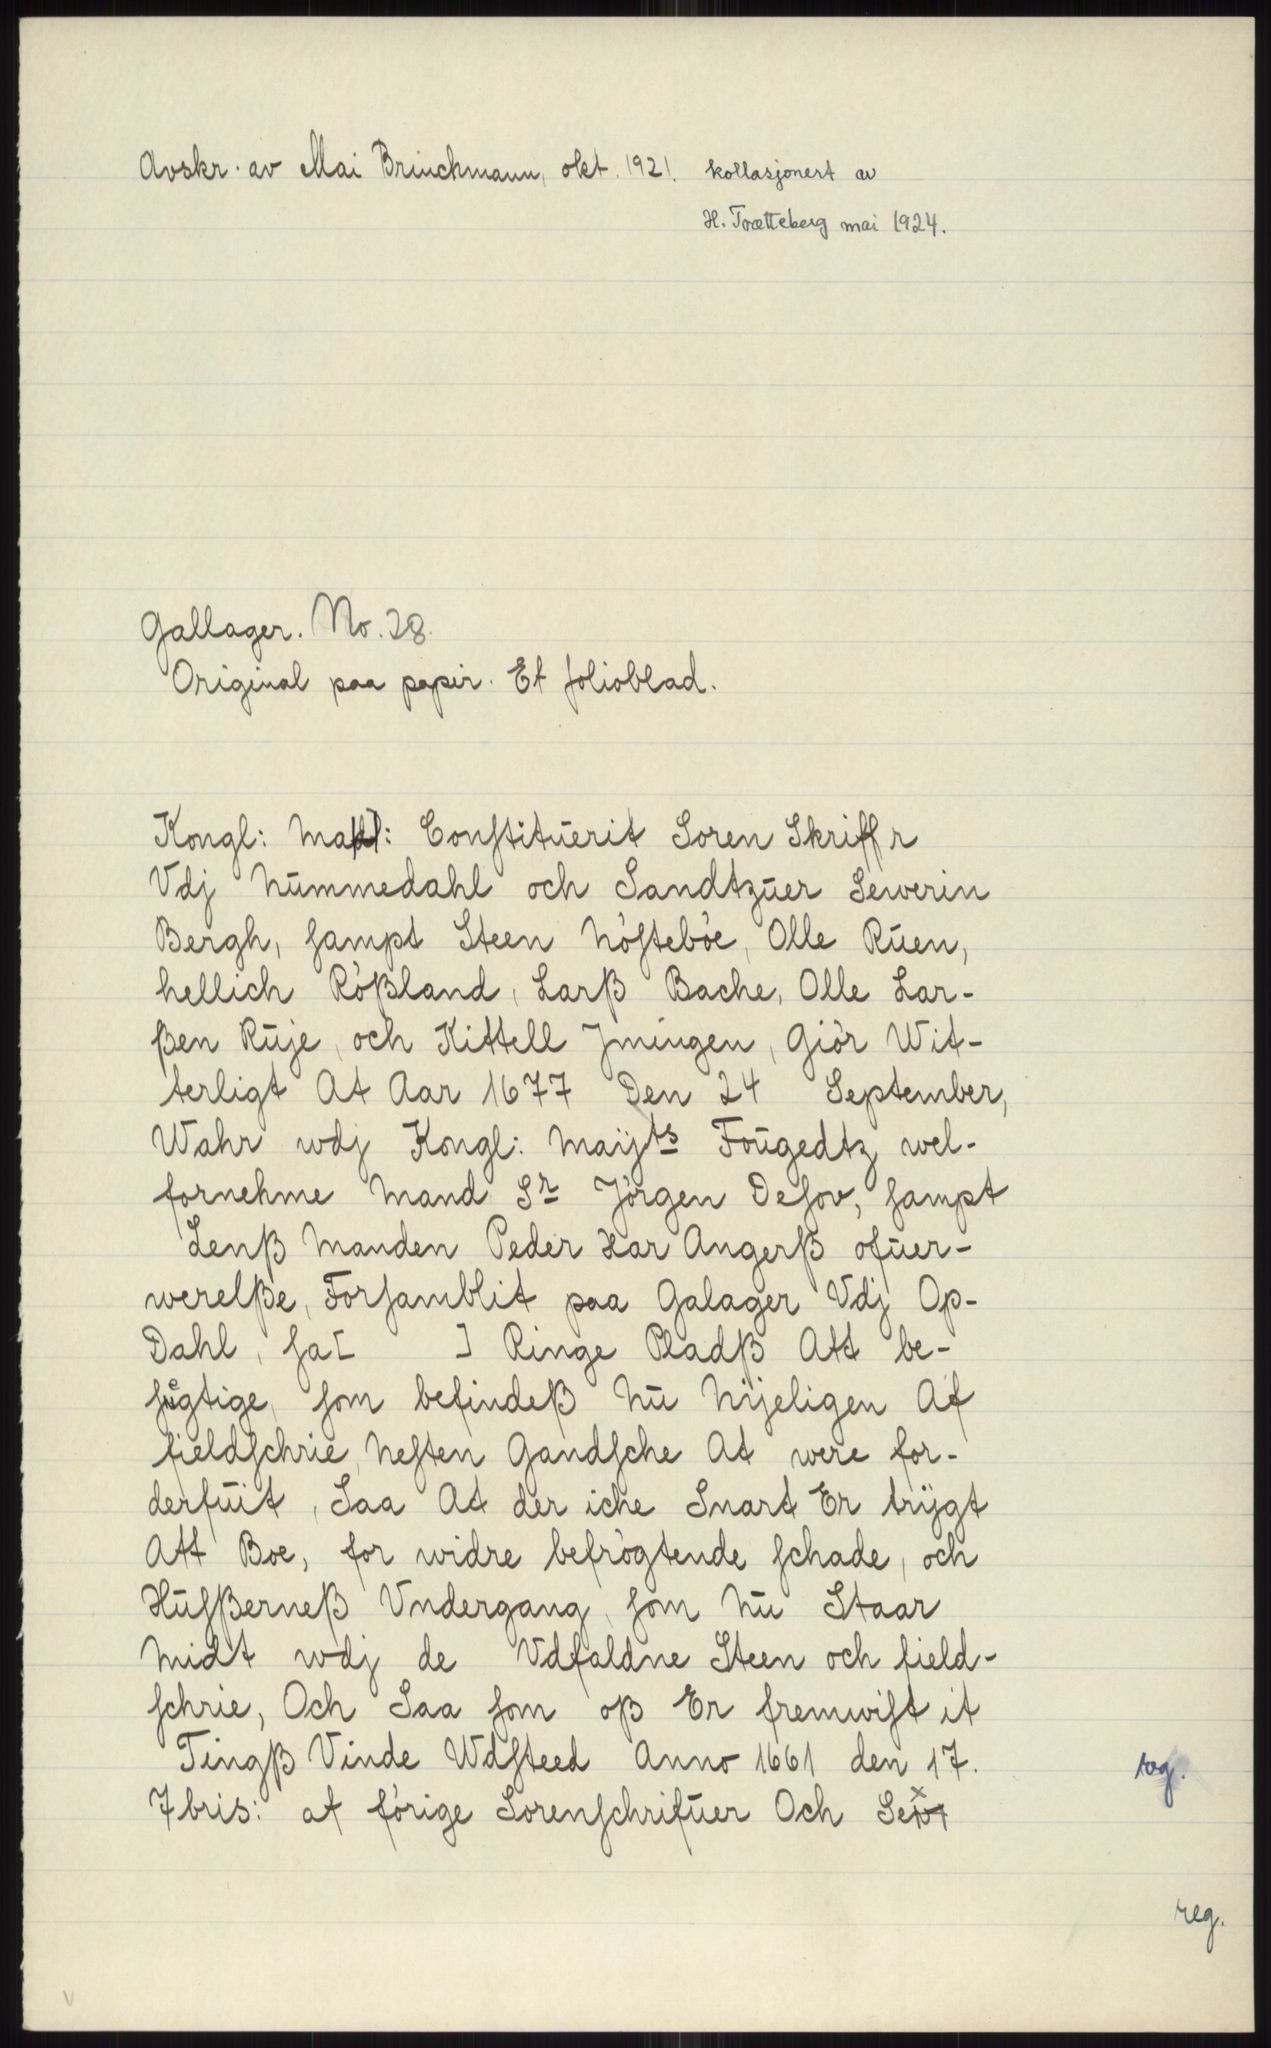 Avskr. av Mai Brinchmann, okt. 1921. kollasjonert av
H. Trætteberg mai 1924.
Gallager. No. 28.
Original paa papir. Et folioblad.
Kongl: Constituerit Soren Skriffr
Vdj Nummedahl och Sandtzuer Sewerin
Bergh, sampt Steen Nösteböe, Olle Ruen,
hellich Rößland, Larß Bache, Olle Lar-
ßen Ruje, och Kittell Jmingen, Giör Wit-
terligt At Aar 1677 Den 24 September,
Wahr wdj Kongl: Maijts Fougedtz wel-
fornehme Mand Sr Jörgen Desov, sampt
Lenß Manden Peder Har Angerß ofuer-
werelße, Forsamblit paa Galager Vdj Op-
Dahl, sa[ ] Ringe Pladß Att be-
sigtige, som befindeß Nu Nijeligen Af
fieldschrie, Nesten Gandsche At were for-
derfuit, Saa At der iche Snart Er trijgt
Att Boe, for widre befrögtende schade, och
Husßerneß Vndergang, som Nu Staar
Midt wdj de Vdfaldne Steen och field-
schrie, Och Saa som oß Er fremwist it
Tingß Vinde Wdsteed Anno 1661 den 17.
7bris: af förige Sorenschrifuer Och
reg.
reg.